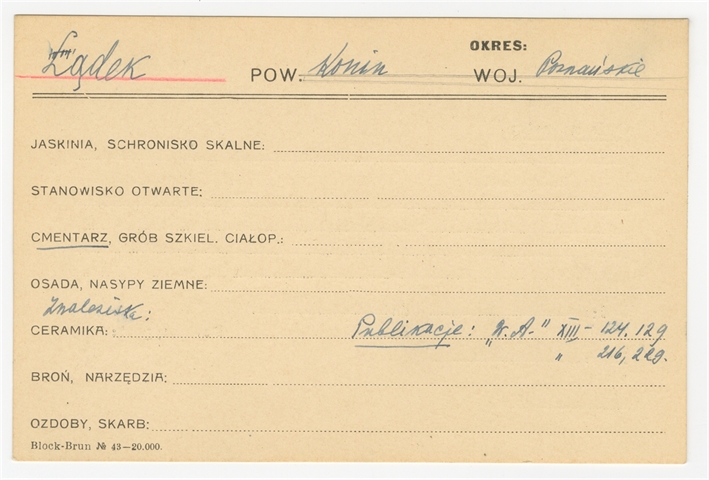 OKRES:
Łądek POW. Konin WOJ. Poznańskie
JASKINIA, SCHRONISKO SKALNE:
STANOWISKO OTWARTE:
CMENTARZ, GRÓB SZKIEL. CIAŁOP.:
OSADA, NASYPY ZIEMNE:
Znaleziska:
CERAMIKA: Publikacje: "W. A." XIII - 124, 129
" 216, 229.
BROŃ, NARZĘDZIA:
OZDOBY, SKARB:
Block-Brun № 43—20.000.